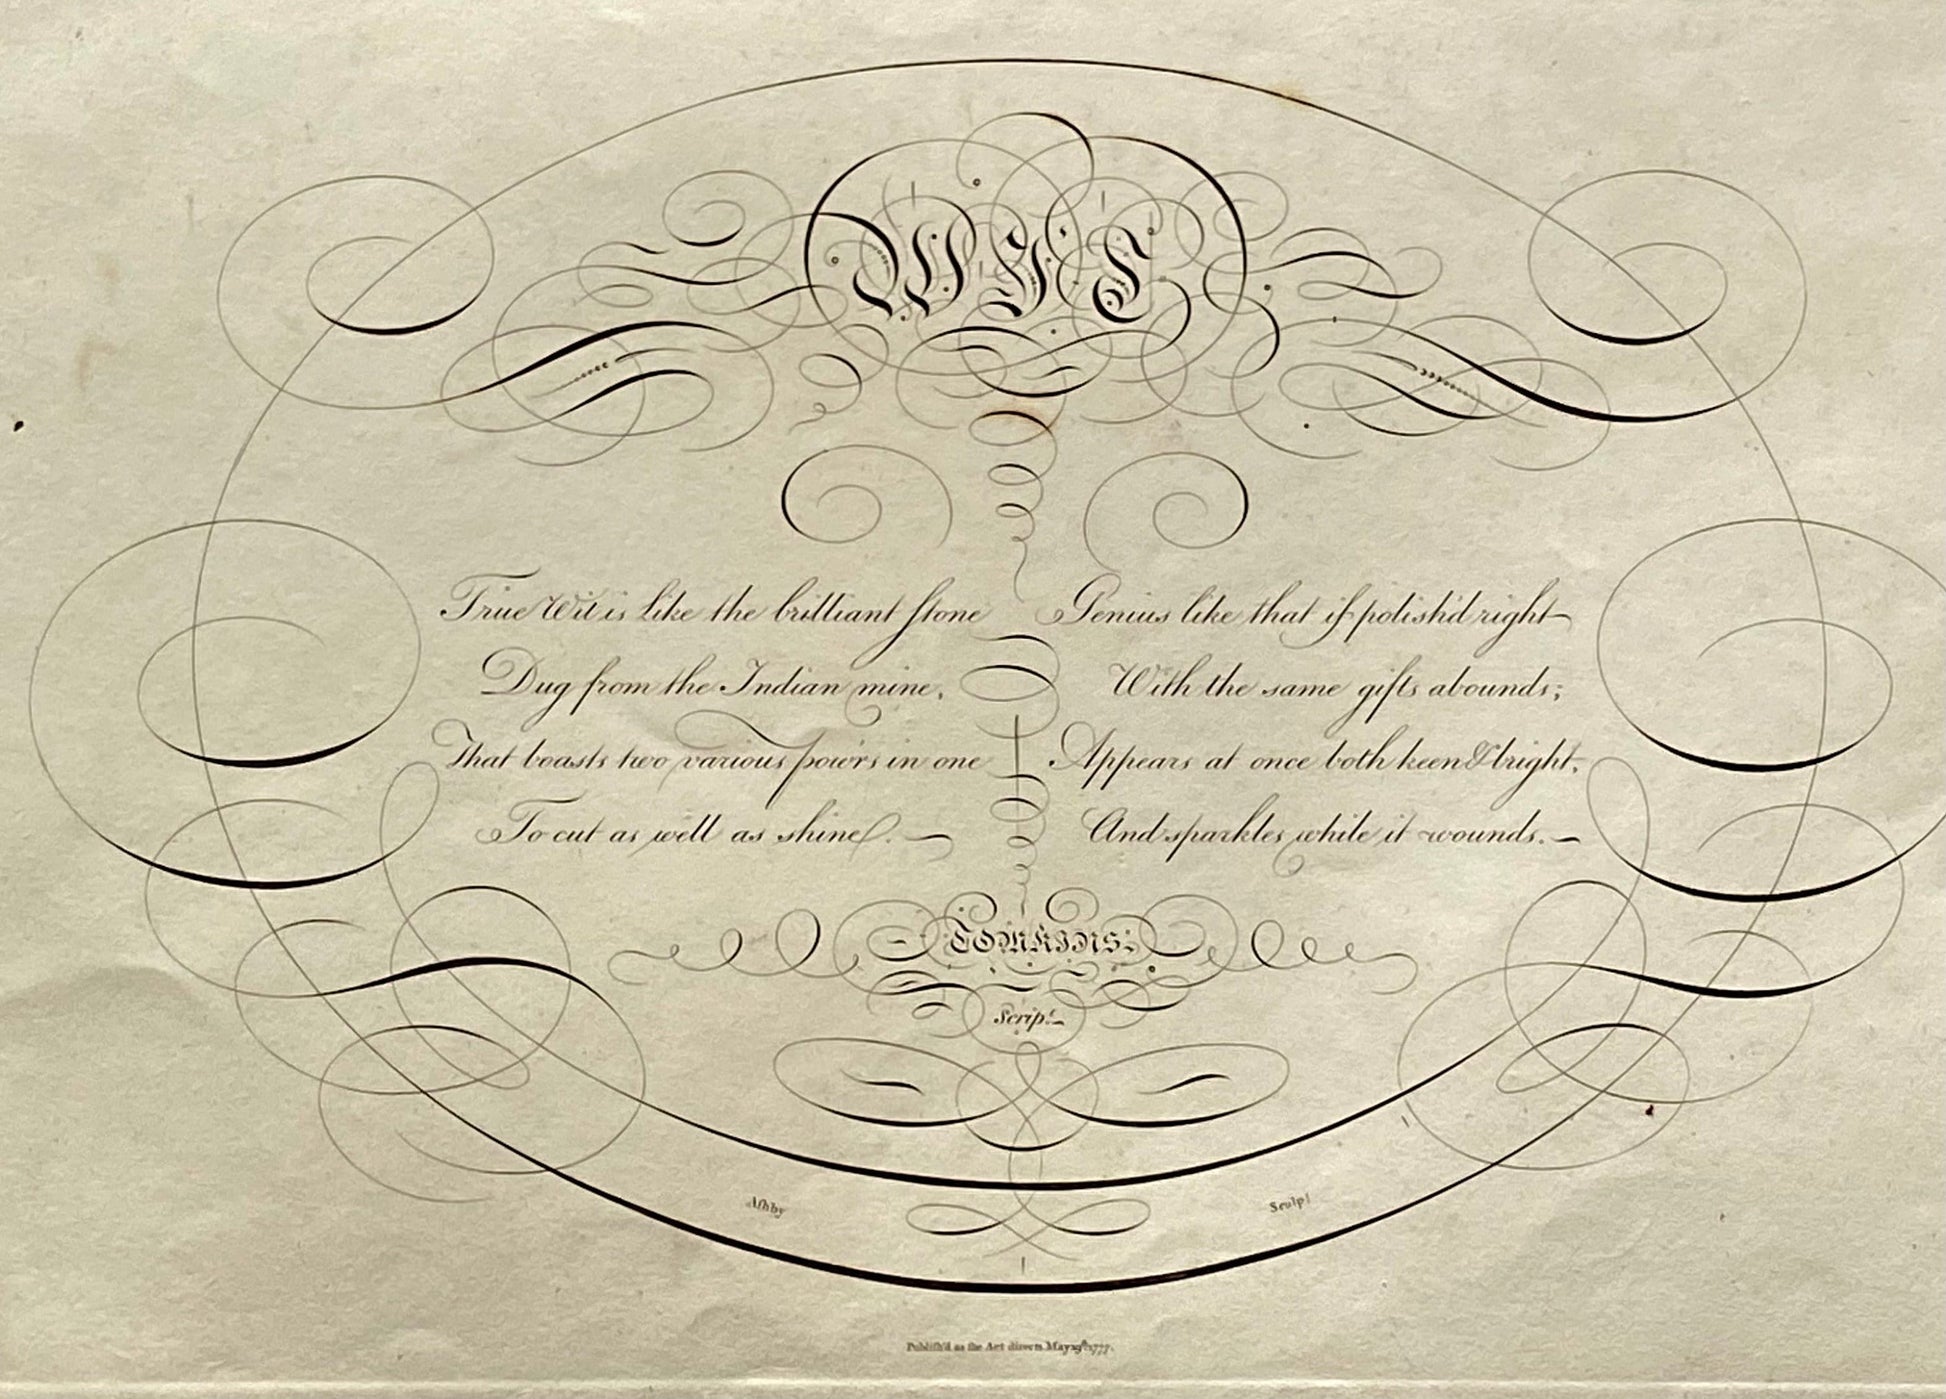 WIT
True Wit is like the brilliant stone
Dug from the Indian mine,
That boasts two various pow'rs in one
To cut as well as shine. —
Genius like that if polish'd right
With the same gifts abounds;
Appears at once both keen & bright,
And sparkles while it wounds. —
TOMKINS.
Scrip.t
Aſhby
Sculp.t
Publiſh'd as the Act directs May 19th 1777.